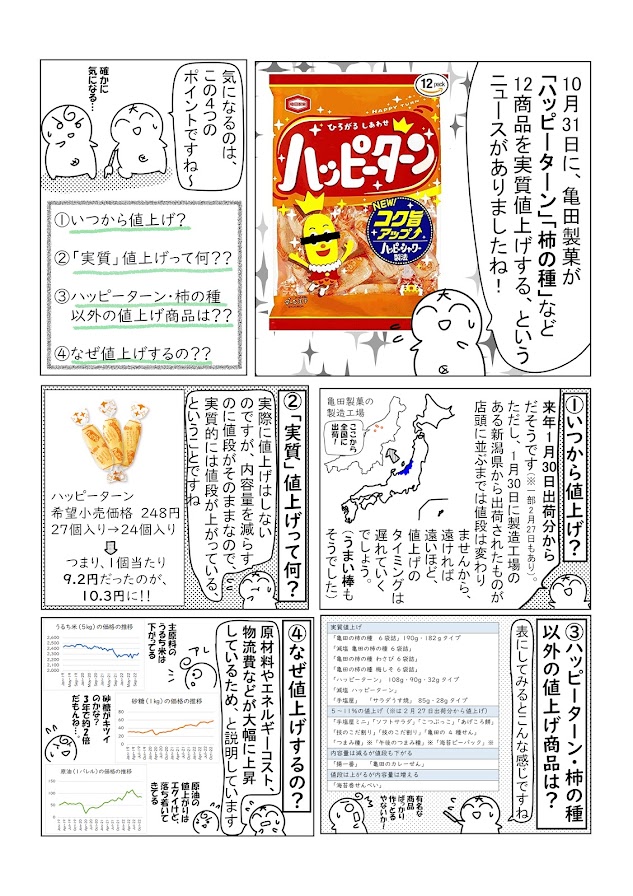 10月31日に、亀田製菓が
「ハッピーターン」「柿の種」など
12商品を実質値上げする、という
ニュースがありましたね！
12 pack
亀田製菓
HAPPY TURN
ひろがる しあわせ
ハッピーターン
NEW!
コク旨
アップ↑
ハッピーシャワー
製法
気になるのは、
この4つの
ポイントですね〜
確かに
気になる…
①いつから値上げ？
②「実質」値上げって何？？
③ハッピーターン・柿の種
以外の値上げ商品は？？
④なぜ値上げするの？？
①いつから値上げ？
来年1月30日出荷分から
だそうです（※一部2月27日もあり）。
ただし、1月30日に製造工場の
ある新潟県から出荷されたものが
店頭に並ぶまでは値段は変わり
ませんから、
遠ければ
遠いほど、
値上げの
タイミングは
遅れていく
でしょう。
（うまい棒も
そうでした）
亀田製菓の
製造工場
ここから
全国に
出荷
②「実質」値上げって何？
実際に値上げはしない
のですが、内容量を減らす
のに値段がそのままなので、
実質的には値段が上がっている、
ということですね
ハッピーターン
希望小売価格 248円
27個入り→24個入り
つまり、1個当たり
9.2円だったのが、
10.3円に!!
③ハッピーターン・柿の種
以外の値上げ商品は？
表にしてみるとこんな感じですね
実質値上げ
「亀田の柿の種 6袋詰」190g・182gタイプ
「減塩 亀田の柿の種 6袋詰」
「亀田の柿の種 わさび 6袋詰」
「亀田の柿の種 梅しそ 6袋詰」
「ハッピーターン」 108g・90g・32gタイプ
「減塩 ハッピーターン」
「手塩屋」 「サラダうす焼」 85g・28gタイプ
5～11%値上げ（※は2月27日出荷分から値上げ）
「手塩屋ミニ」「ソフトサラダ」「こつぶっこ」「あげころ餅」
「技のこだ割り」「技のこだ割り」「亀田の4種せん」
「つまみ種」※「午後のつまみ種」※「海苔ピーパック」※
内容量は減るが値段も下がる
「揚一番」 「亀田のカレーせん」
値段は上がるが内容量は増える
「海苔巻せんべい」
有名な
商品
ばっかり
作っとる
やないか！
④なぜ値上げするの？
原材料やエネルギーコスト、
物流費などが大幅に上昇
しているため、と説明しています
主原料の
うるち米は
下がってる
砂糖がキツイ
のかな？
3年で約2倍
だもんね…
原油の
値上がりは
エグイけど、
落ち着いて
きてる
うるち米(5kg)の価格の推移
2,600
2,500
2,400
2,300
2,200
2,100
2,000
砂糖(1kg)の価格の推移
60
50
40
30
20
10
0
原油(1バレル)の価格の推移
150
100
50
0